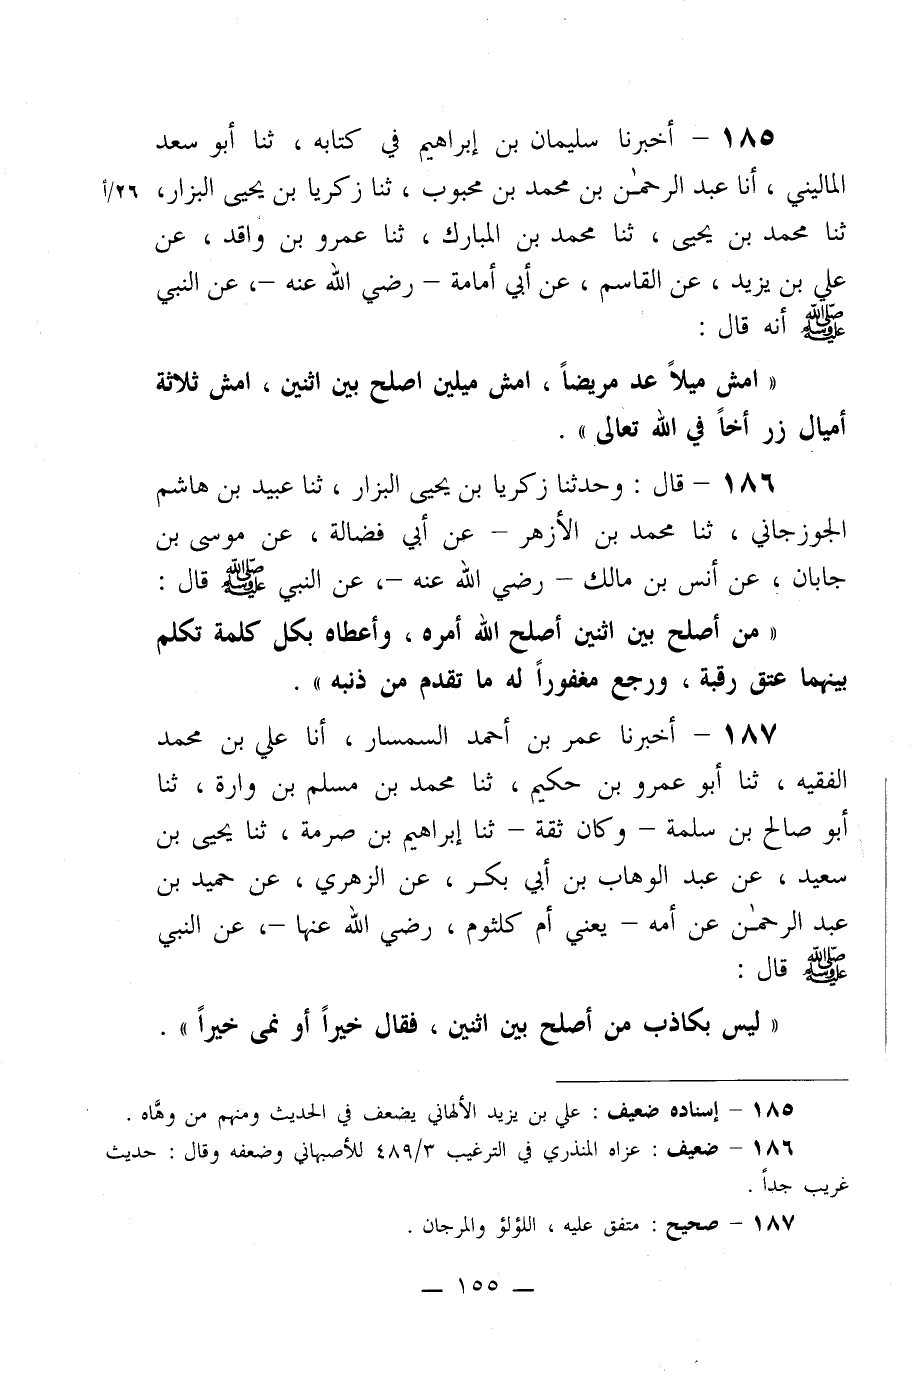 ١٨٥ – أخبرنا سليمان بن إبراهيم في كتابه ، ثنا أبو سعد
الماليني ، أنا عبد الرحمٰن بن محمد بن محبوب ، ثنا زكريا بن يحيى البزار، ٢٦/أ
ثنا محمد بن يحيى ، ثنا محمد بن المبارك ، ثنا عمرو بن واقد ، عن
علي بن يزيد ، عن القاسم ، عن أبي أمامة – رضي الله عنه –، عن النبي
ﷺ أنه قال :
« امش ميلاً عد مريضاً ، امش ميلين اصلح بين اثنين ، امش ثلاثة
أميال زر أخاً في الله تعالى » .
١٨٦ – قال : وحدثنا زكريا بن يحيى البزار ، ثنا عبيد بن هاشم
الجوزجاني ، ثنا محمد بن الأزهر – عن أبي فضالة ، عن موسى بن
جابان ، عن أنس بن مالك – رضي الله عنه –، عن النبي ﷺ قال :
« من أصلح بين اثنين أصلح الله أمره ، وأعطاه بكل كلمة تكلم
بينهما عتق رقبة ، ورجع مغفوراً له ما تقدم من ذنبه » .
١٨٧ – أخبرنا عمر بن أحمد السمسار ، أنا علي بن محمد
الفقيه ، ثنا أبو عمرو بن حكيم ، ثنا محمد بن مسلم بن وارة ، ثنا
أبو صالح بن سلمة – وكان ثقة – ثنا إبراهيم بن صرمة ، ثنا يحيى بن
سعيد ، عن عبد الوهاب بن أبي بكر ، عن الزهري ، عن حميد بن
عبد الرحمٰن عن أمه – يعني أم كلثوم ، رضي الله عنها –، عن النبي
ﷺ قال :
« ليس بكاذب من أصلح بين اثنين ، فقال خيراً أو نمى خيراً » .
١٨٥ – إسناده ضعيف : علي بن يزيد الألهاني يضعف في الحديث ومنهم من وهَّاه .
١٨٦ – ضعيف : عزاه المنذري في الترغيب ٤٨٩/٣ للأصبهاني وضعفه وقال : حديث
غريب جداً .
١٨٧ – صحيح : متفق عليه ، اللؤلؤ والمرجان .
— ١٥٥ —